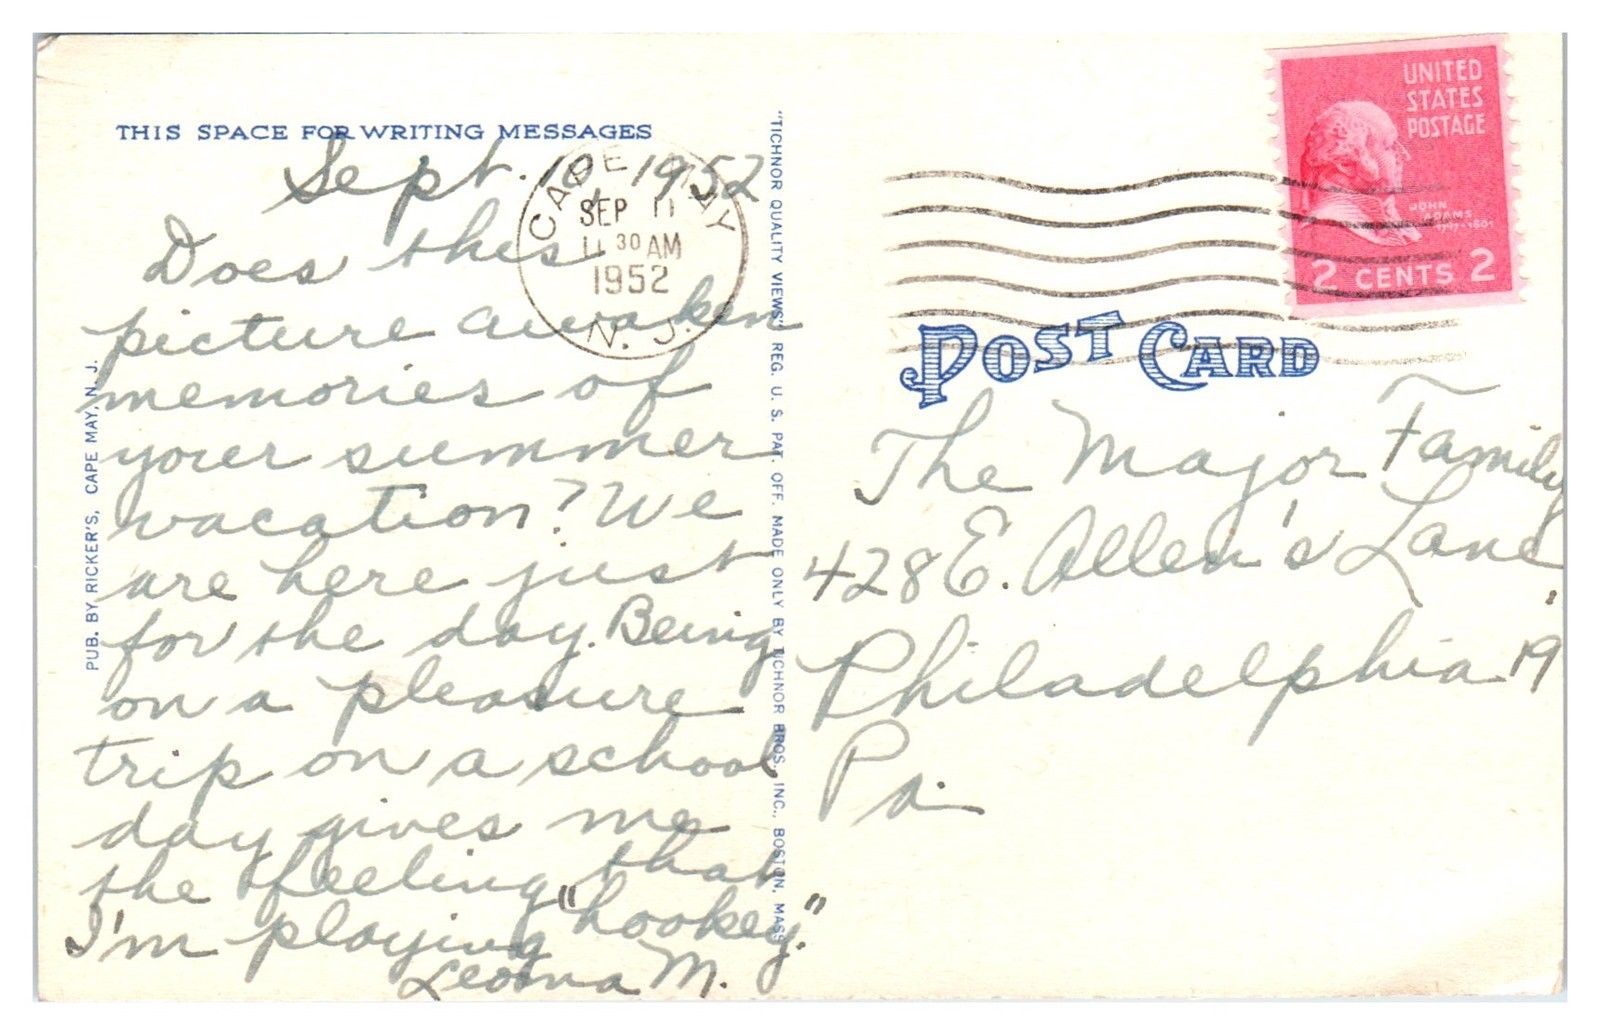 THIS SPACE FOR WRITING MESSAGES
Sept. 10, 1952
Does this
picture awaken
memories of
your summer
vacation? We
are here just
for the day. Being
on a pleasure
trip on a school
day gives me
the feeling that
I'm playing "hookey."
Leona M.
PUB. BY RICKER'S, CAPE MAY, N. J.
"TICHNOR QUALITY VIEWS" REG. U. S. PAT. OFF. MADE ONLY BY TICHNOR BROS. INC., BOSTON, MASS.
CAPE MAY
SEP 11
11 30 AM
1952
N. J.
UNITED
STATES
POSTAGE
JOHN
ADAMS
1797-1801
2 CENTS 2
POST CARD
The Major Family
428 E. Allen's Lane,
Philadelphia 19
Pa.